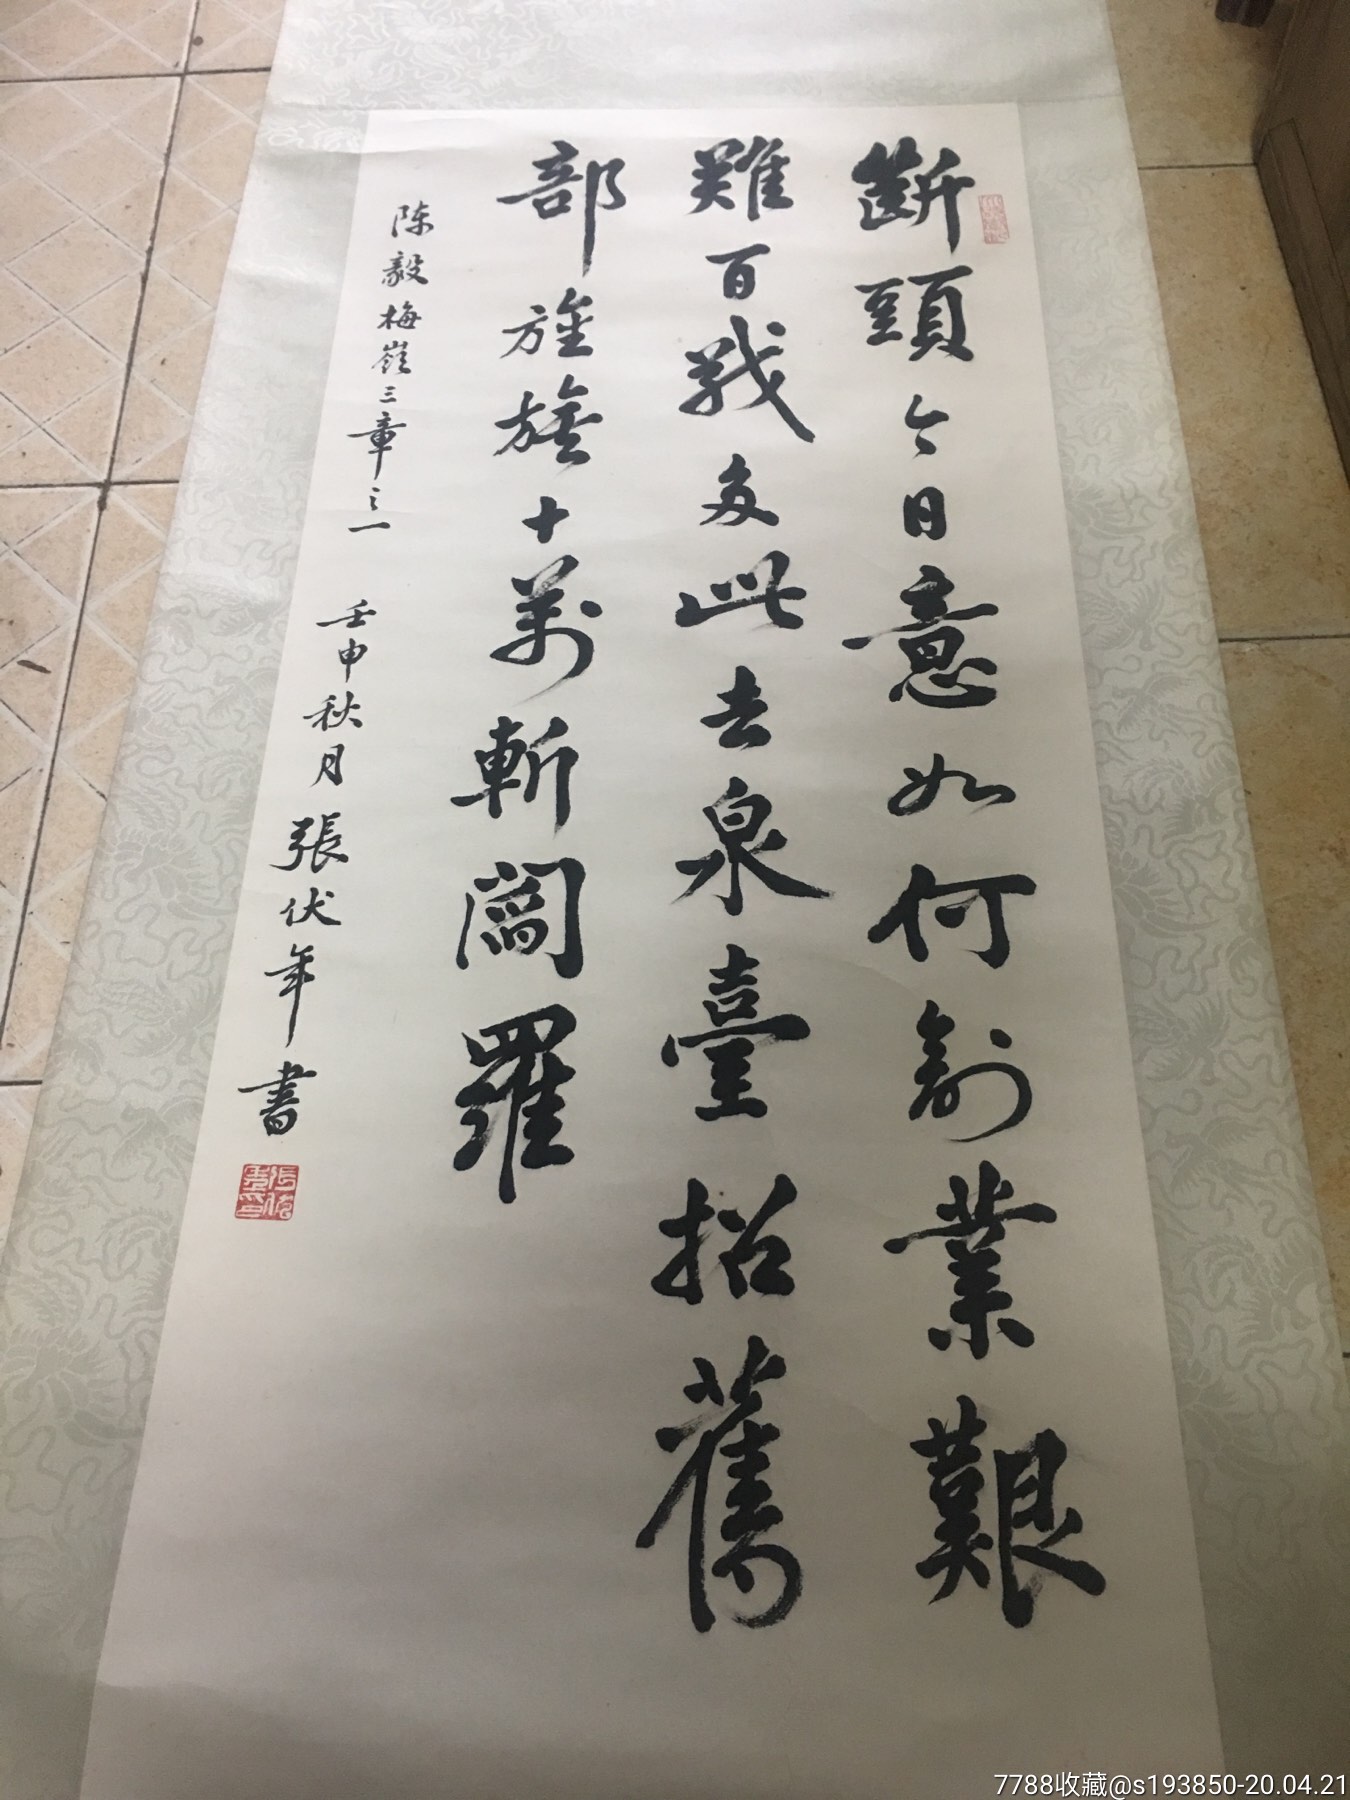 斷頭今日意如何創業艱
難百戰多此去泉臺招舊
部旌旗十萬斬閻羅
陈毅梅嶺三章之一 壬申秋月 張伏年書
7788收藏@s193850-20.04.21